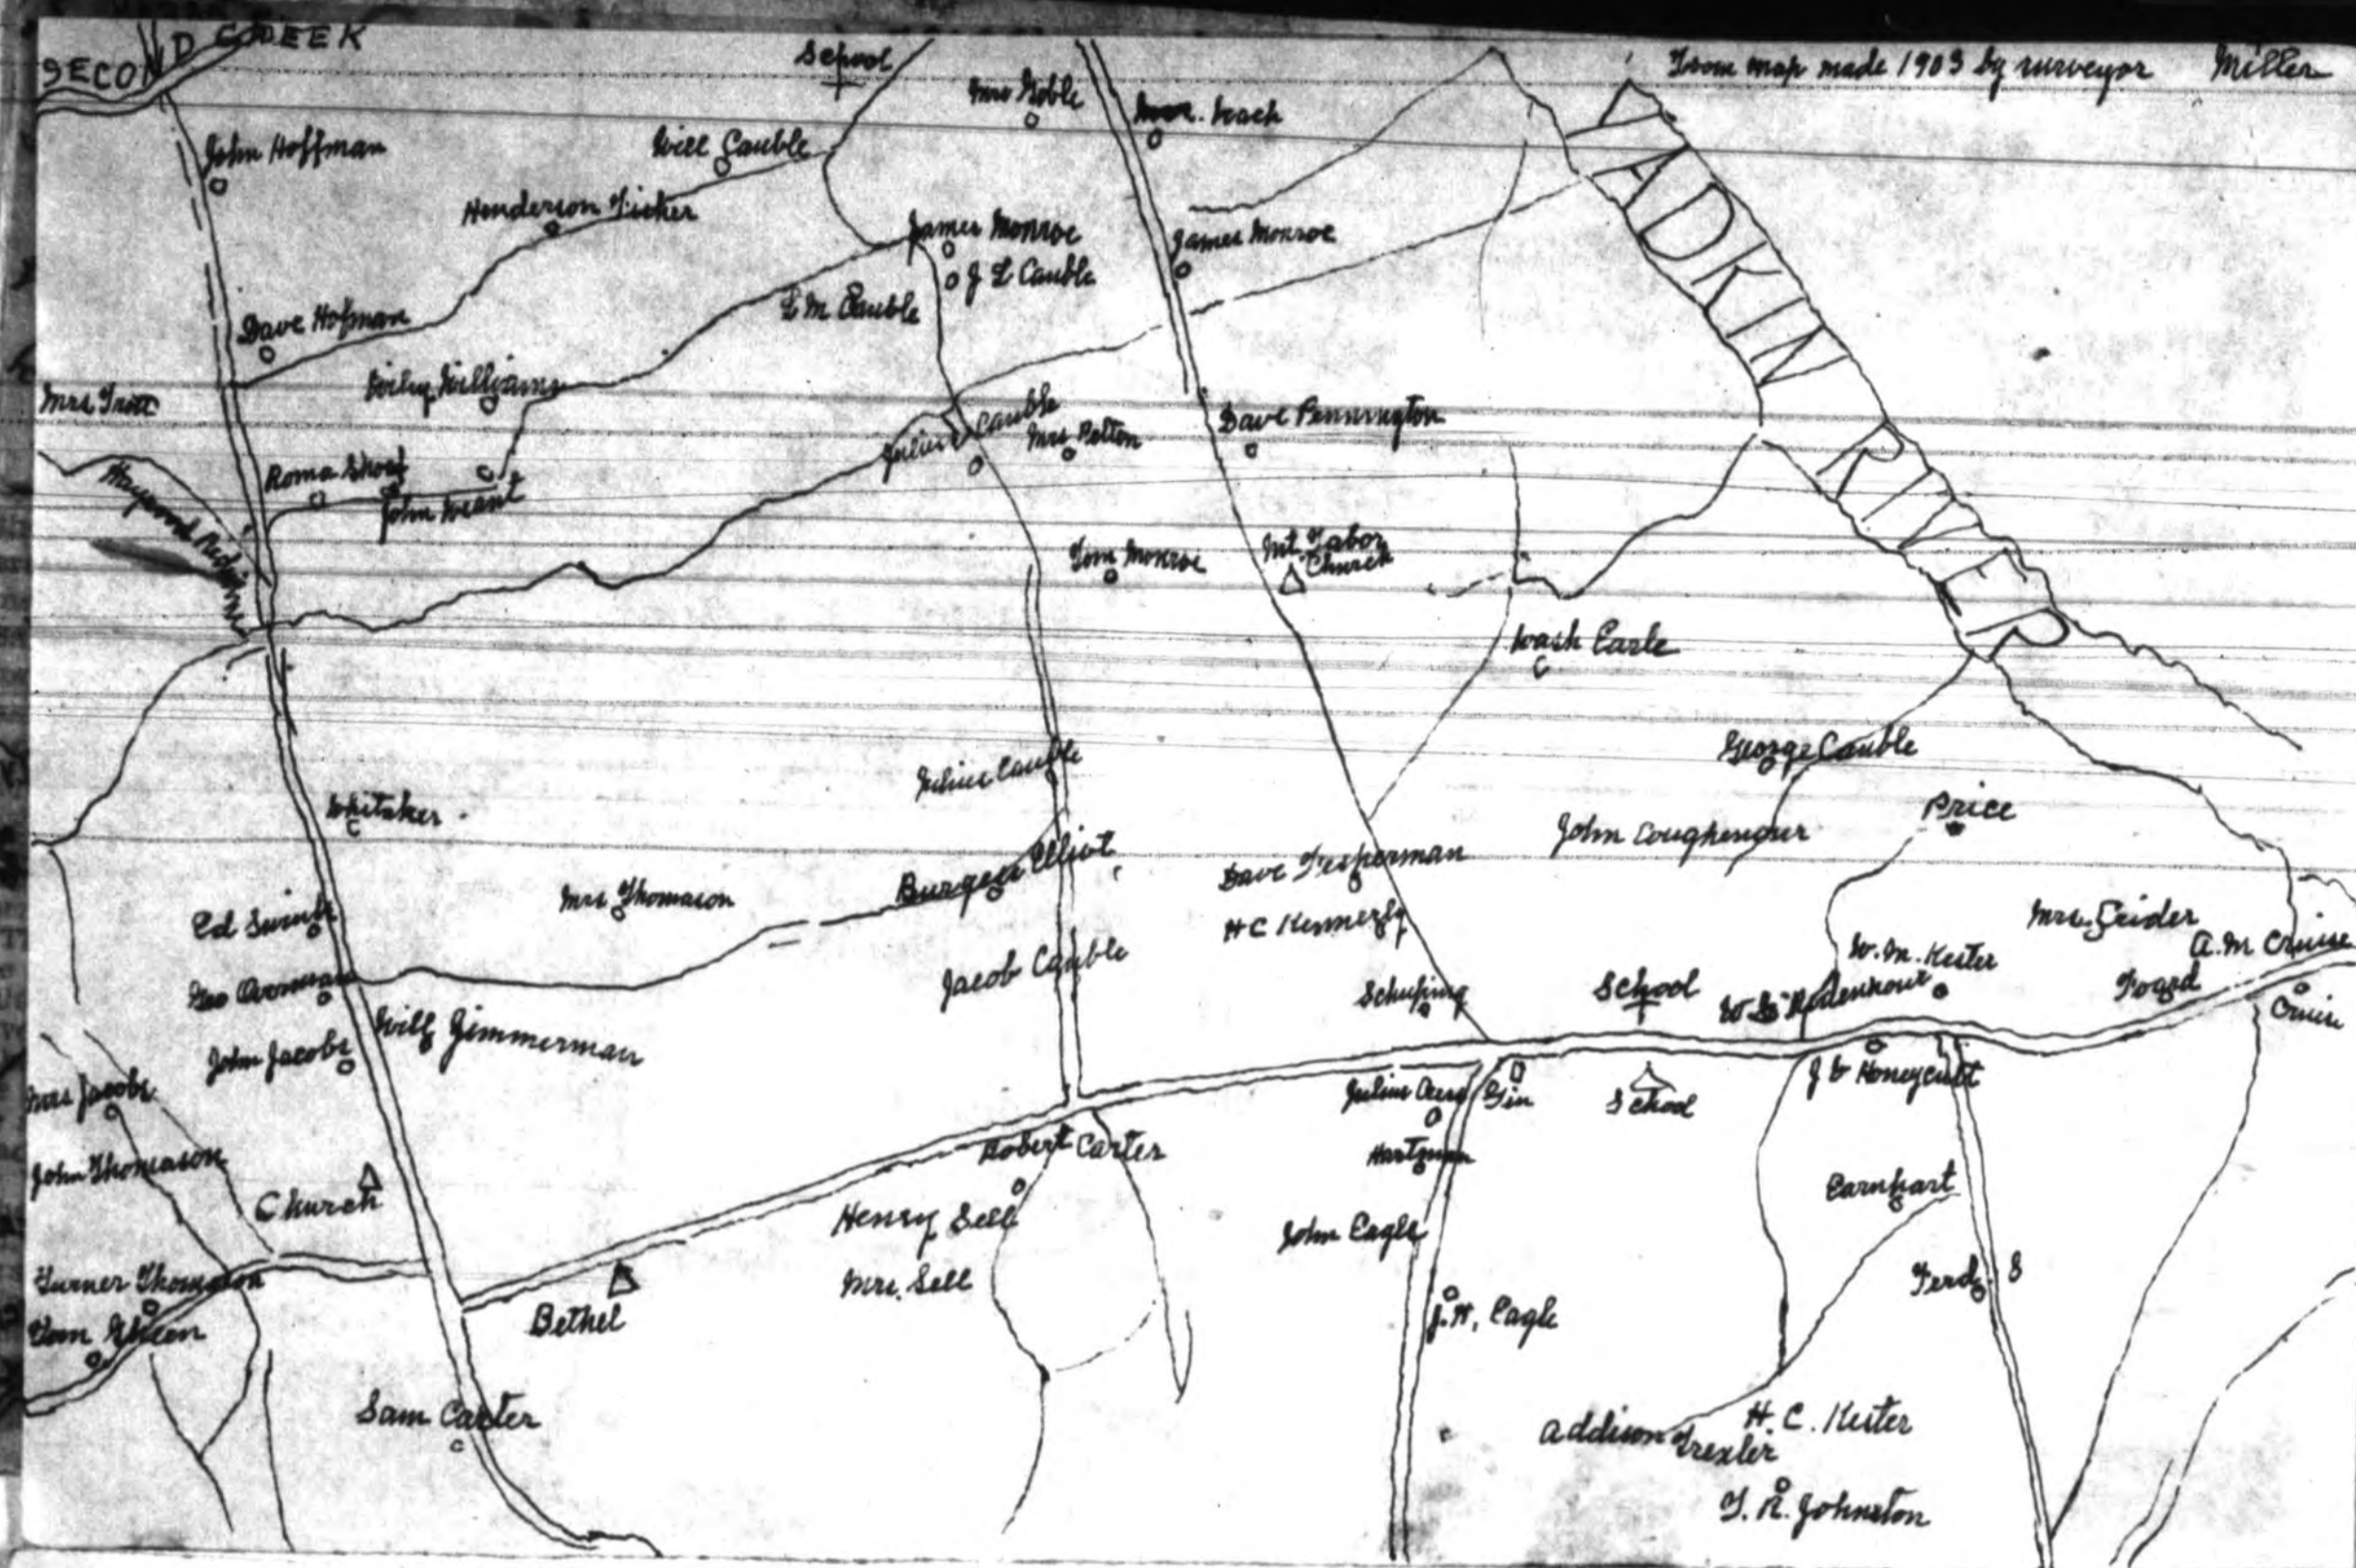 SECOND CREEK
School
From map made 1903 by surveyor Miller
Mrs Goble
Leach
John Hoffman
Will Cauble
Henderson Fisher
James Monroe
James Monroe
J L Cauble
L M Cauble
YADKIN RIVER
Dave Hofman
Wiley Williams
Mrs Trott
Julius Cauble
Mrs Pelton
Dave Pennington
Roma Shoaf
John Weant
Haywood Redwine
Tom Monroe
Mt. Tabor
Church
Wash Earle
George Cauble
Julius Cauble
Whitaker
Price
John Coughenour
Burgess Elliot
Dave Fesperman
Mrs Thomason
H C Kennerly
Mrs. Crider
A. M Cruise
Ed Swink
W. M. Kester
Jacob Cauble
Foard
Geo
Schuping
School
Rodenhour
Cruise
Will Zimmerman
John Jacobs
J W Honeycutt
Mrs Jacobs
Julius
Gin
School
Robert Carter
Hartman
John Thomason
Church
Earnhart
Henry Sell
John Eagle
Turner Thomason
Mrs. Sell
Ferd
Bethel
J. H. Eagle
Tom Gheen
Sam Carter
H. C. Kester
Addison Trexler
T. R. Johnston